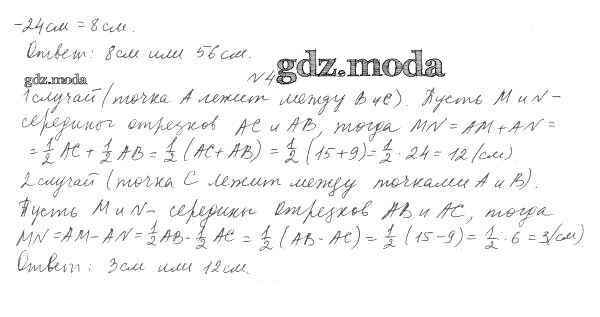 -24см = 8см.
Ответ: 8см или 56см.
gdz.moda
gdz.moda
№4
1 случай (точка А лежит между В и С). Пусть М и N-
середины отрезков АС и АВ, тогда MN = AM + AN =
= 1/2 AC + 1/2 AB = 1/2 (AC + AB) = 1/2 (15+9) = 1/2 · 24 = 12 (см)
2 случай (точка С лежит между точками А и В).
Пусть М и N- середины отрезков АВ и АС, тогда
MN = AM - AN = 1/2 AB - 1/2 AC = 1/2 (AB - AC) = 1/2 (15-9) = 1/2 · 6 = 3 (см)
Ответ: 3см или 12см.